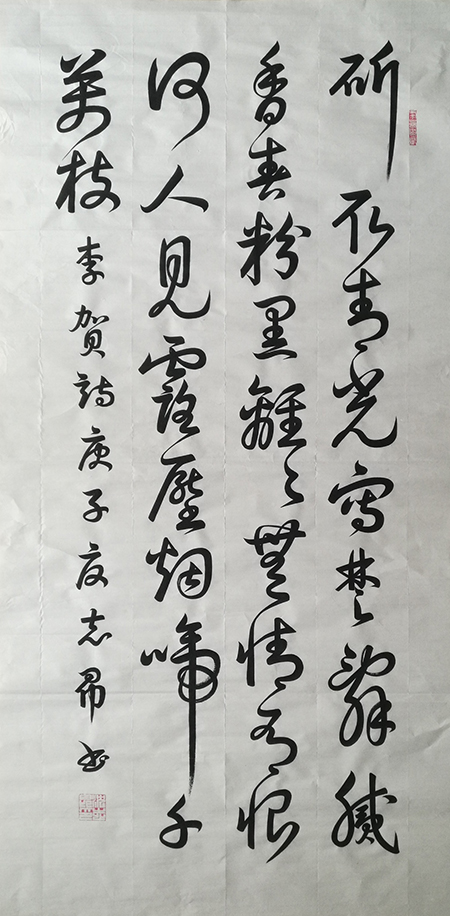 斫取青光寫楚辭膩
香春粉黑離々無情有恨
何人見露壓烟啼千
萬枝 李賀詩庚子夏志昂书